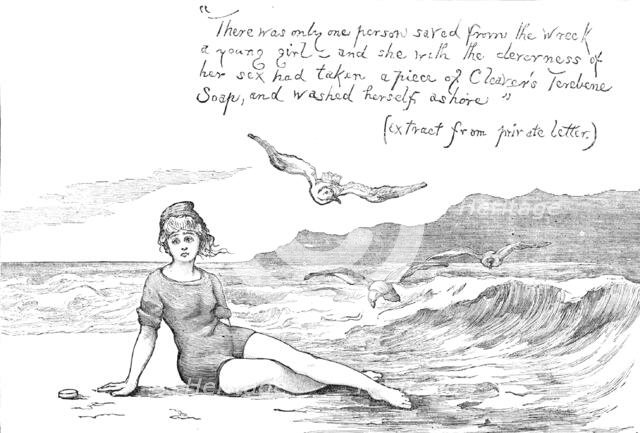 "There was only one person saved from the wreck
a young girl – and she with the cleverness of
her sex had taken a piece of Cleaver's Terebene
Soap, and washed herself ashore"
(extract from private letter.)
Heritage
Heritage